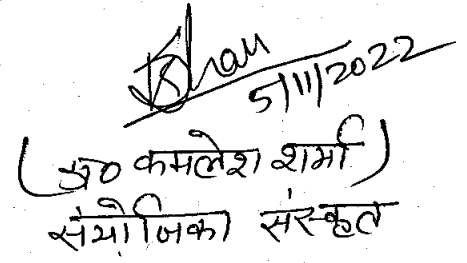 5/11/2022
(डॉ० कमलेश शर्मा)
संयोजिका संस्कृत